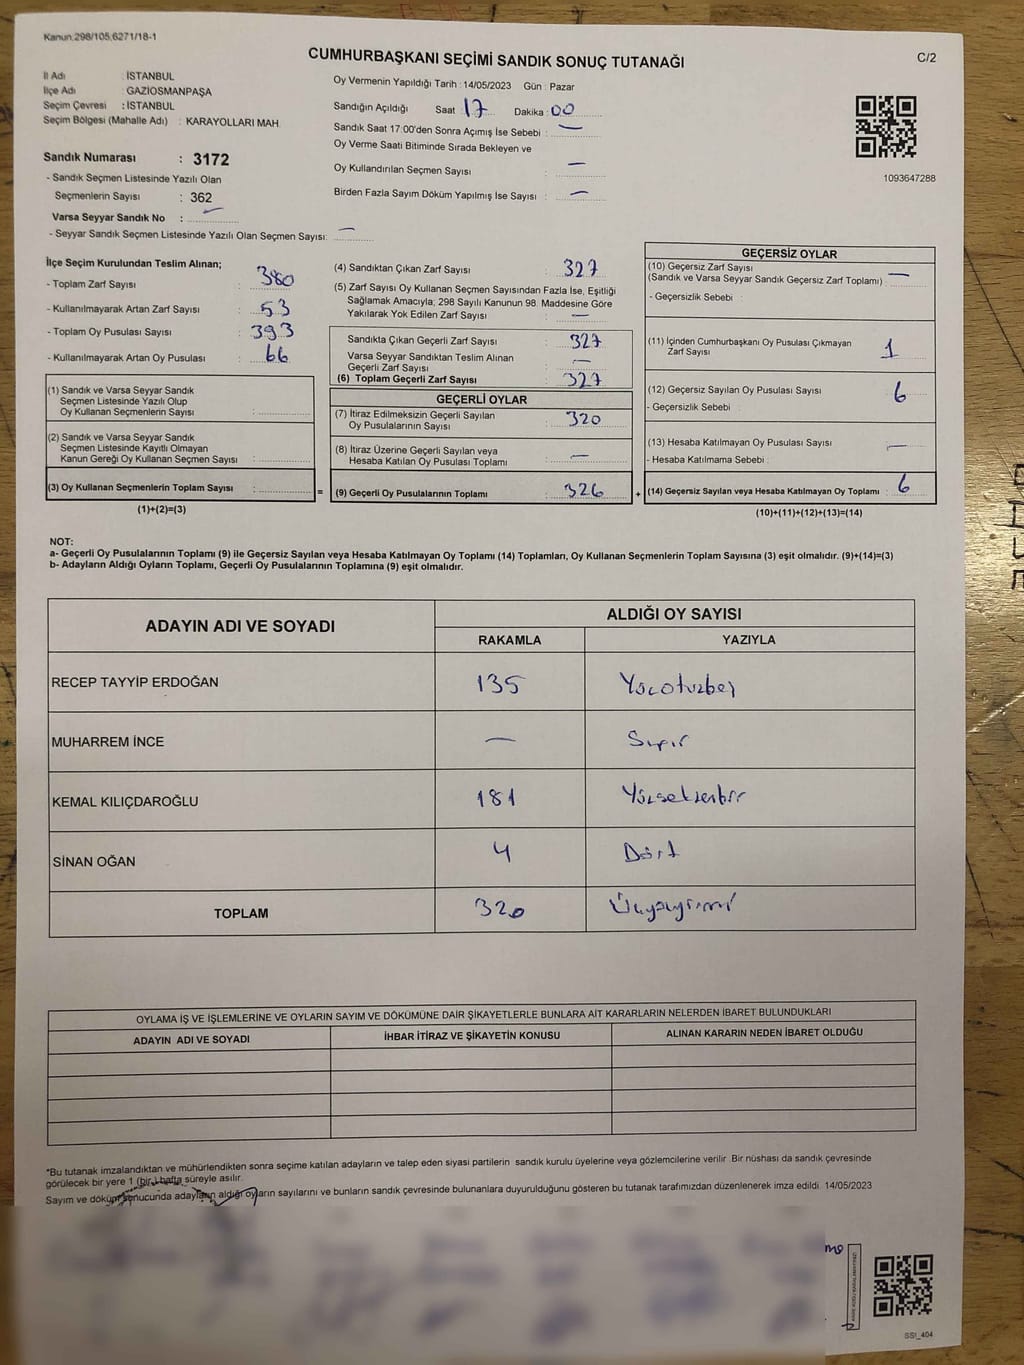 Kanun:298/105;6271/18-1
CUMHURBAŞKANI SEÇİMİ SANDIK SONUÇ TUTANAĞI
C/2
İl Adı : İSTANBUL
İlçe Adı : GAZİOSMANPAŞA
Seçim Çevresi : İSTANBUL
Seçim Bölgesi (Mahalle Adı) : KARAYOLLARI MAH.
Sandık Numarası : 3172
- Sandık Seçmen Listesinde Yazılı Olan
Seçmenlerin Sayısı : 362
Varsa Seyyar Sandık No : —
- Seyyar Sandık Seçmen Listesinde Yazılı Olan Seçmen Sayısı: —
Oy Vermenin Yapıldığı Tarih : 14/05/2023 Gün : Pazar
Sandığın Açıldığı Saat 17 Dakika : 00
Sandık Saat 17:00'den Sonra Açılmış İse Sebebi : —
Oy Verme Saati Bitiminde Sırada Bekleyen ve
Oy Kullandırılan Seçmen Sayısı : —
Birden Fazla Sayım Döküm Yapılmış İse Sayısı : —
1093647288
İlçe Seçim Kurulundan Teslim Alınan;
- Toplam Zarf Sayısı : 380
- Kullanılmayarak Artan Zarf Sayısı : 53
- Toplam Oy Pusulası Sayısı : 393
- Kullanılmayarak Artan Oy Pusulası : 66
(1) Sandık ve Varsa Seyyar Sandık
Seçmen Listesinde Yazılı Olup
Oy Kullanan Seçmenlerin Sayısı :
(2) Sandık ve Varsa Seyyar Sandık
Seçmen Listesinde Kayıtlı Olmayan
Kanun Gereği Oy Kullanan Seçmen Sayısı :
(3) Oy Kullanan Seçmenlerin Toplam Sayısı : =
(1)+(2)=(3)
(4) Sandıktan Çıkan Zarf Sayısı : 327
(5) Zarf Sayısı Oy Kullanan Seçmen Sayısından Fazla İse, Eşitliği
Sağlamak Amacıyla; 298 Sayılı Kanunun 98. Maddesine Göre
Yakılarak Yok Edilen Zarf Sayısı : —
Sandıkta Çıkan Geçerli Zarf Sayısı : 327
Varsa Seyyar Sandıktan Teslim Alınan
Geçerli Zarf Sayısı : —
(6) Toplam Geçerli Zarf Sayısı : 327
GEÇERLİ OYLAR
(7) İtiraz Edilmeksizin Geçerli Sayılan
Oy Pusulalarının Sayısı : 320
(8) İtiraz Üzerine Geçerli Sayılan veya
Hesaba Katılan Oy Pusulası Toplamı : —
(9) Geçerli Oy Pusulalarının Toplamı : 326 +
GEÇERSİZ OYLAR
(10) Geçersiz Zarf Sayısı
(Sandık ve Varsa Seyyar Sandık Geçersiz Zarf Toplamı) : —
- Geçersizlik Sebebi :
(11) İçinden Cumhurbaşkanı Oy Pusulası Çıkmayan
Zarf Sayısı : 1
(12) Geçersiz Sayılan Oy Pusulası Sayısı : 6
- Geçersizlik Sebebi :
(13) Hesaba Katılmayan Oy Pusulası Sayısı : —
- Hesaba Katılmama Sebebi :
(14) Geçersiz Sayılan veya Hesaba Katılmayan Oy Toplamı : 6
(10)+(11)+(12)+(13)=(14)
NOT:
a- Geçerli Oy Pusulalarının Toplamı (9) ile Geçersiz Sayılan veya Hesaba Katılmayan Oy Toplamı (14) Toplamları, Oy Kullanan Seçmenlerin Toplam Sayısına (3) eşit olmalıdır. (9)+(14)=(3)
b- Adayların Aldığı Oyların Toplamı, Geçerli Oy Pusulalarının Toplamına (9) eşit olmalıdır.
ADAYIN ADI VE SOYADI
ALDIĞI OY SAYISI
RAKAMLA YAZIYLA
RECEP TAYYİP ERDOĞAN 135 Yüzotuzbeş
MUHARREM İNCE — Sıfır
KEMAL KILIÇDAROĞLU 181 Yüzseksenbir
SİNAN OĞAN 4 Dört
TOPLAM 320 Üçyüzyirmi
OYLAMA İŞ VE İŞLEMLERİNE VE OYLARIN SAYIM VE DÖKÜMÜNE DAİR ŞİKAYETLERLE BUNLARA AİT KARARLARIN NELERDEN İBARET BULUNDUKLARI
ADAYIN ADI VE SOYADI İHBAR İTİRAZ VE ŞİKAYETİN KONUSU ALINAN KARARIN NEDEN İBARET OLDUĞU
*Bu tutanak imzalandıktan ve mühürlendikten sonra seçime katılan adayların ve talep eden siyasi partilerin sandık kurulu üyelerine veya gözlemcilerine verilir. Bir nüshası da sandık çevresinde
görülecek bir yere 1 (bir) hafta süreyle asılır.
Sayım ve döküm sonucunda adayların aldığı oyların sayılarını ve bunların sandık çevresinde bulunanlara duyurulduğunu gösteren bu tutanak tarafımızdan düzenlenerek imza edildi. 14/05/2023
SSt_404